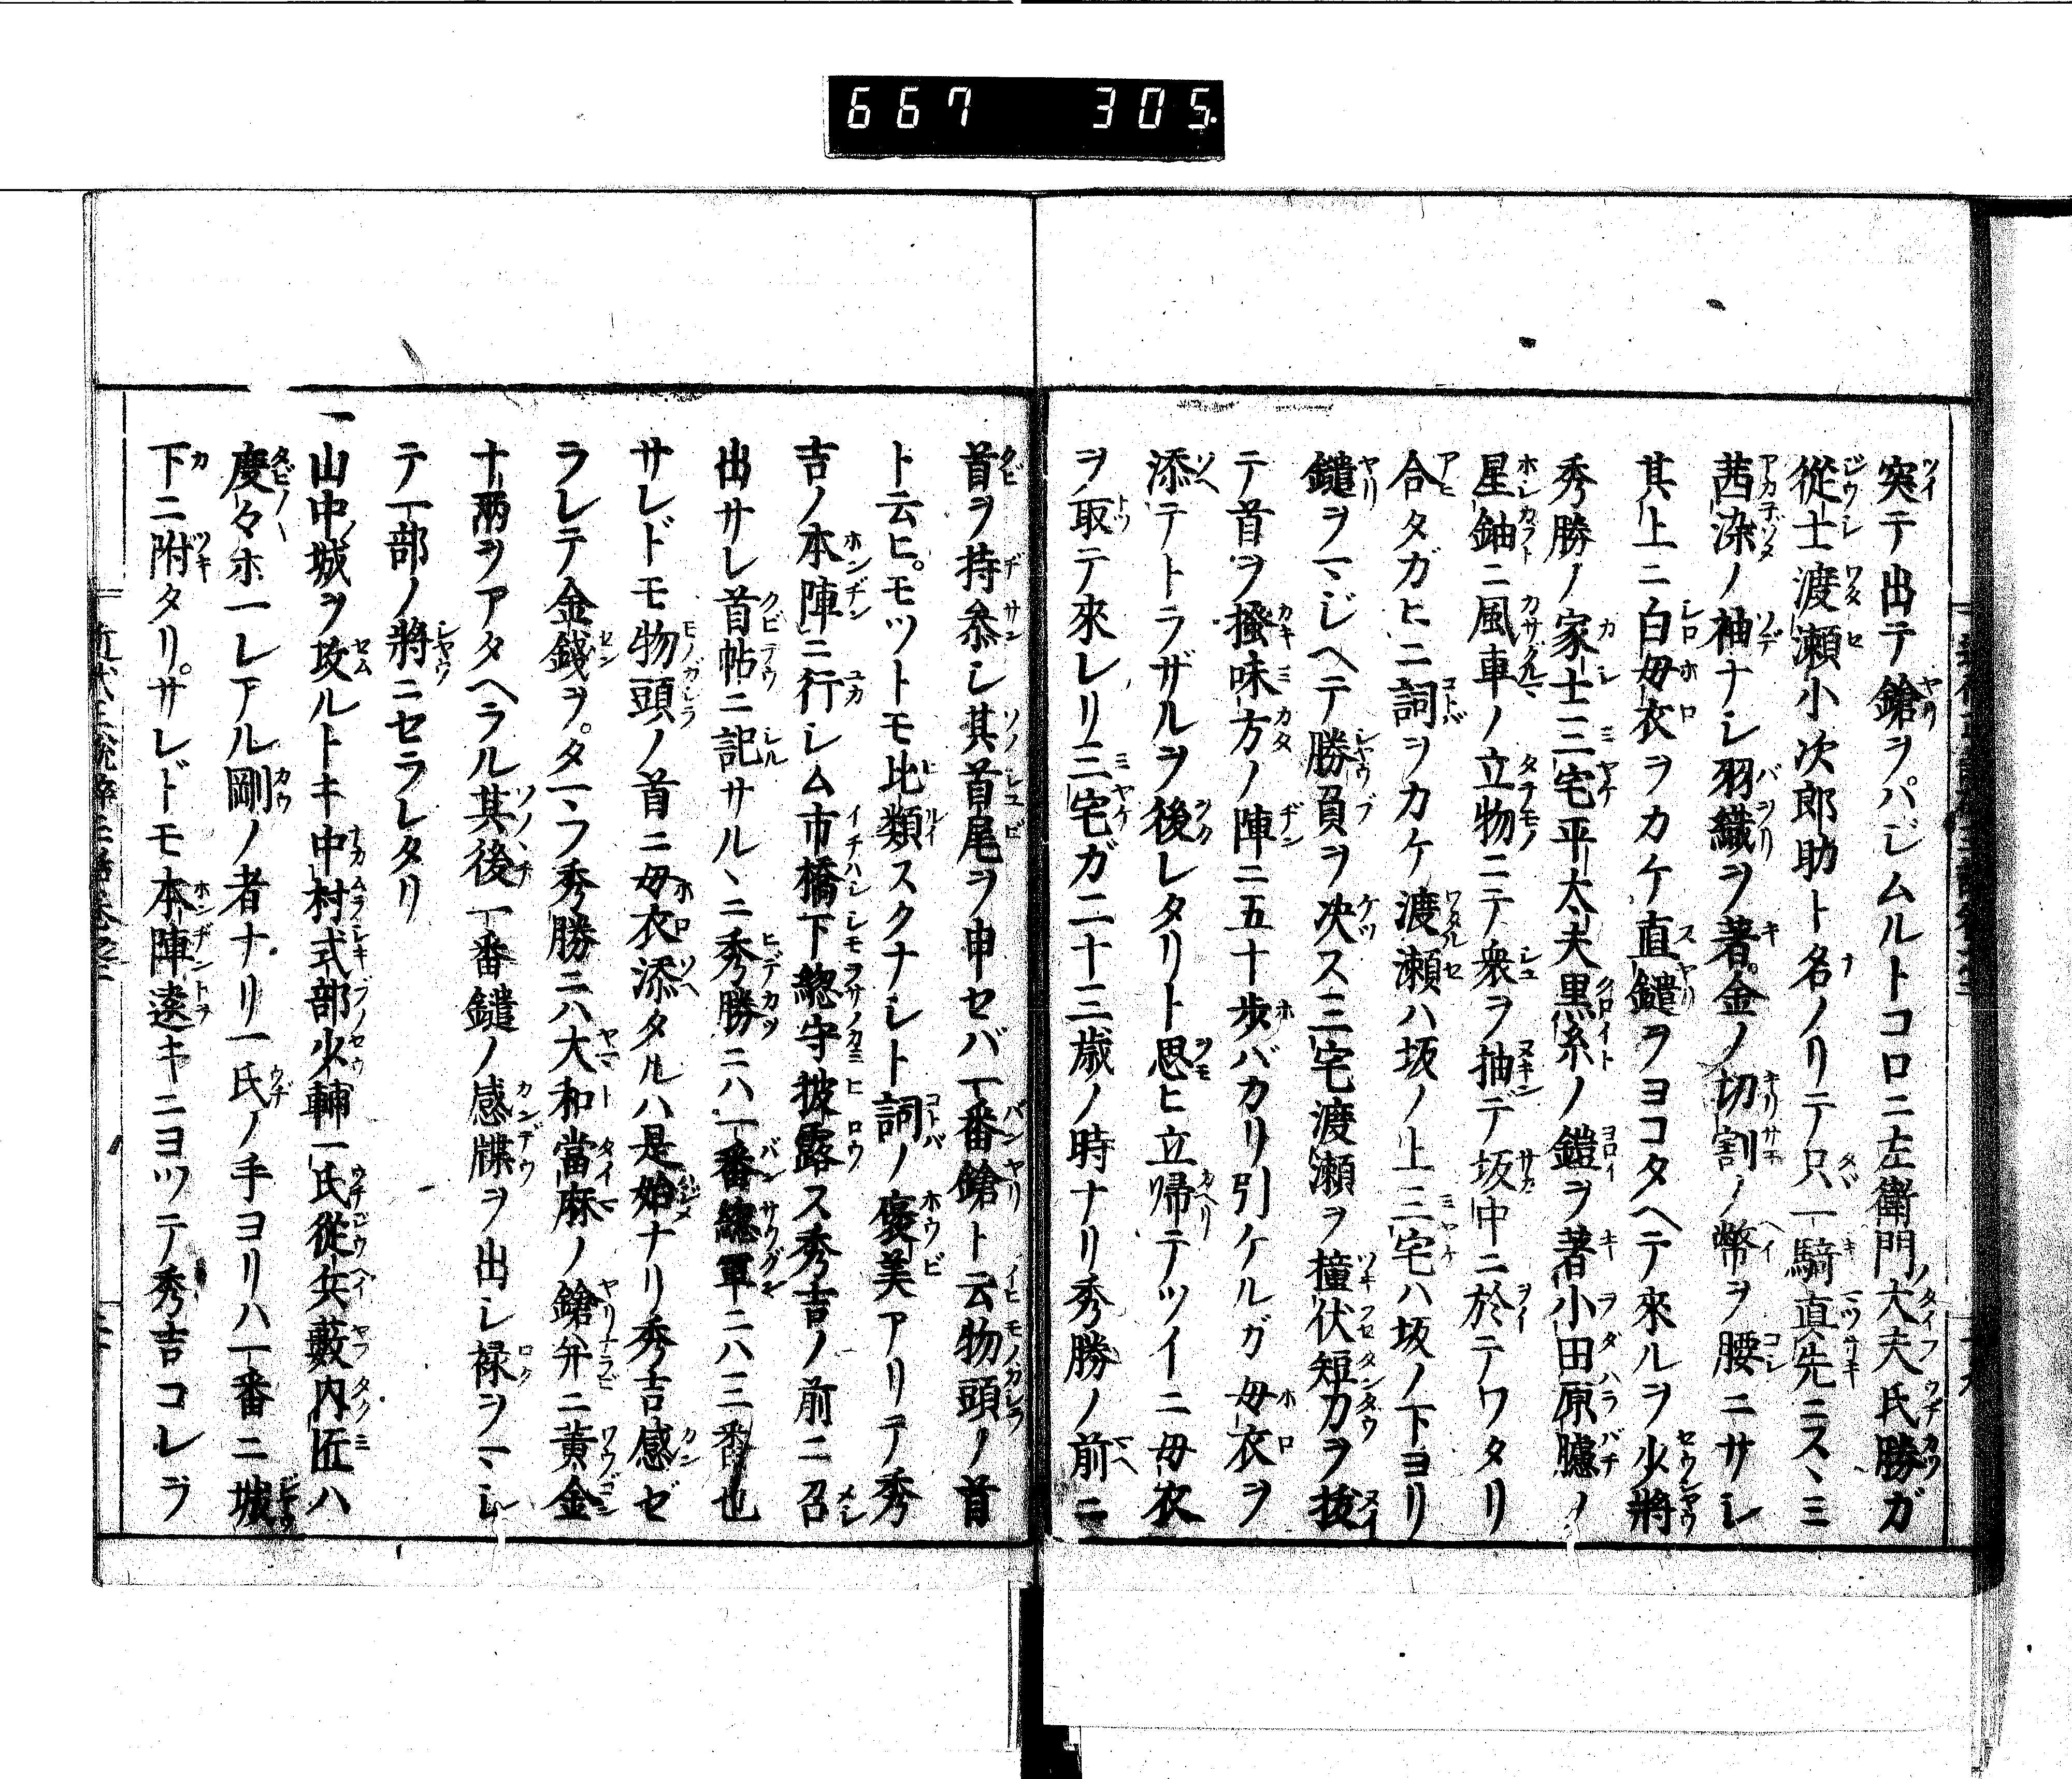 667 305
突テ出テ鎗ヲハジムルトコロニ左衛門大夫氏勝ガ
從士渡瀬小次郎助ト名ノリテ只一騎直先ニスヽミ
茜染ノ袖ナシ羽織ヲ著金ノ切割ノ幣ヲ腰ニサシ
其上ニ白母衣ヲカケ直鑓ヲヨコタヘテ來ルヲ少將
秀勝ノ家士三宅平太夫黒糸ノ鎧ヲ著小田原鐙ノ
星鈾ニ風車ノ立物ニテ衆ヲ抽デ坂中ニ於テワタリ
合タガヒニ詞ヲカケ渡瀬ハ坂ノ上三宅ハ坂ノ下ヨリ
鑓ヲマジヘテ勝負ヲ决ス三宅渡瀬ヲ撞伏短刀ヲ抜
テ首ヲ掻味方ノ陣ニ五十歩バカリ引ケルガ母衣ヲ
添テトラザルヲ後レタリト思ヒ立帰テツイニ母衣
ヲ取テ來レリ三宅ガ二十三歳ノ時ナリ秀勝ノ前ニ
首ヲ持參シ其首尾ヲ申セバ一番鎗ト云物頭ノ首
ト云ヒモツトモ比類スクナシト詞ノ褒美アリテ秀
吉ノ本陣ニ行シム市橋下総守披露ス秀吉ノ前ニ召
出サレ首帖ニ記サルヽニ秀勝ニハ一番総軍ニハ三番也
サレドモ物頭ノ首ニ母衣添タルハ是始ナリ秀吉感ゼ
ラレテ金錢ヲタマフ秀勝ニハ大和當麻ノ鎗并ニ黄金
十兩ヲアタヘラル其後一番鑓ノ感牒ヲ出シ禄ヲマシ
テ一部ノ將ニセラレタリ
一山中ノ城ヲ攻ルトキ中村式部少輔一氏從兵藪内匠ハ
度々ホマレアル剛ノ者ナリ一氏ノ手ヨリハ一番ニ城
下ニ附タリサレドモ本陣遠キニヨツテ秀吉コレヲ